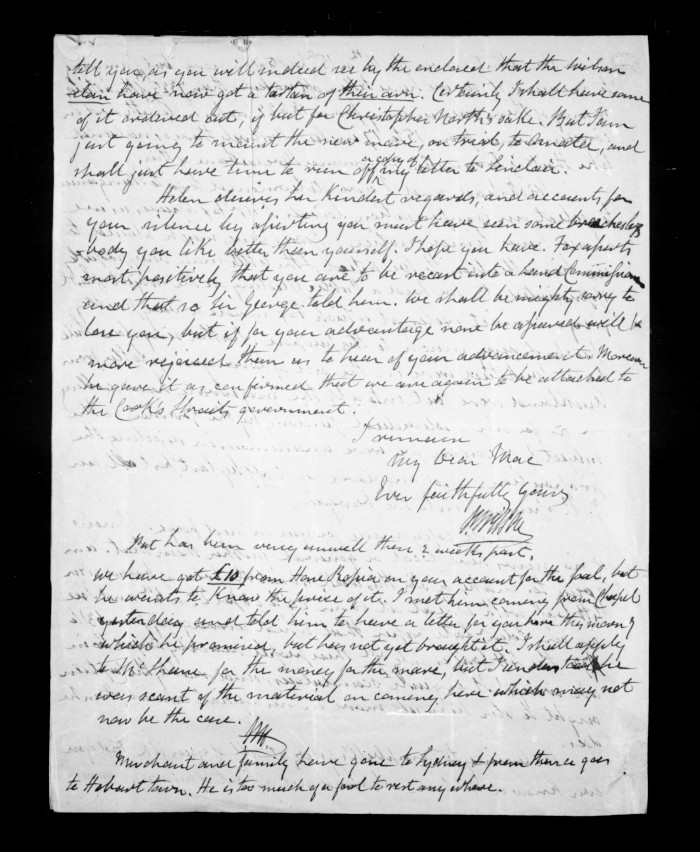 tell you, as you will indeed see by the enclosed that the Wilson
clan have now got a tartan of their own. Certainly I shall have some
of it ordered out, if but for Christopher North's sake. But I am
just going to mount the new mare, on trial, to Omata, and
shall just have time to run off my letter to Sinclair.
or copy of
Helen desires her kindest regards, and accounts for
your silence by asserting you must have seen some
body you like better than yourself. I hope you have. Fox asserts
most positively that you are to be recast into a Land Commissioner
and that so Sir George told him. We shall be mighty sorry to
lose you, but if for your advantage none be assured will be
more rejoiced than us to hear of your advancement. Moreover
he gave it as confirmed that we are again to be attached to
the Cook's Straits government.
I remain
My Dear Mac
Ever faithfully yours
P. Wilson
Pat has been very unwell these 2 weeks past.
We have got £10 from Hone Ropiha on your account for the foal, but
he wants to know the price of it. I met him coming from Chapel
yesterday and told him to leave a letter for you here this morng
which he promised, but has not yet brought it. I shall apply
to McShane for the money for the mare, but I understand he
was scant of the material on coming here which may not
now be the case.
PW
Merchant and family have gone to Sydney & from thence goes
to Hobart town. He is too much of a fool to rest anywhere.